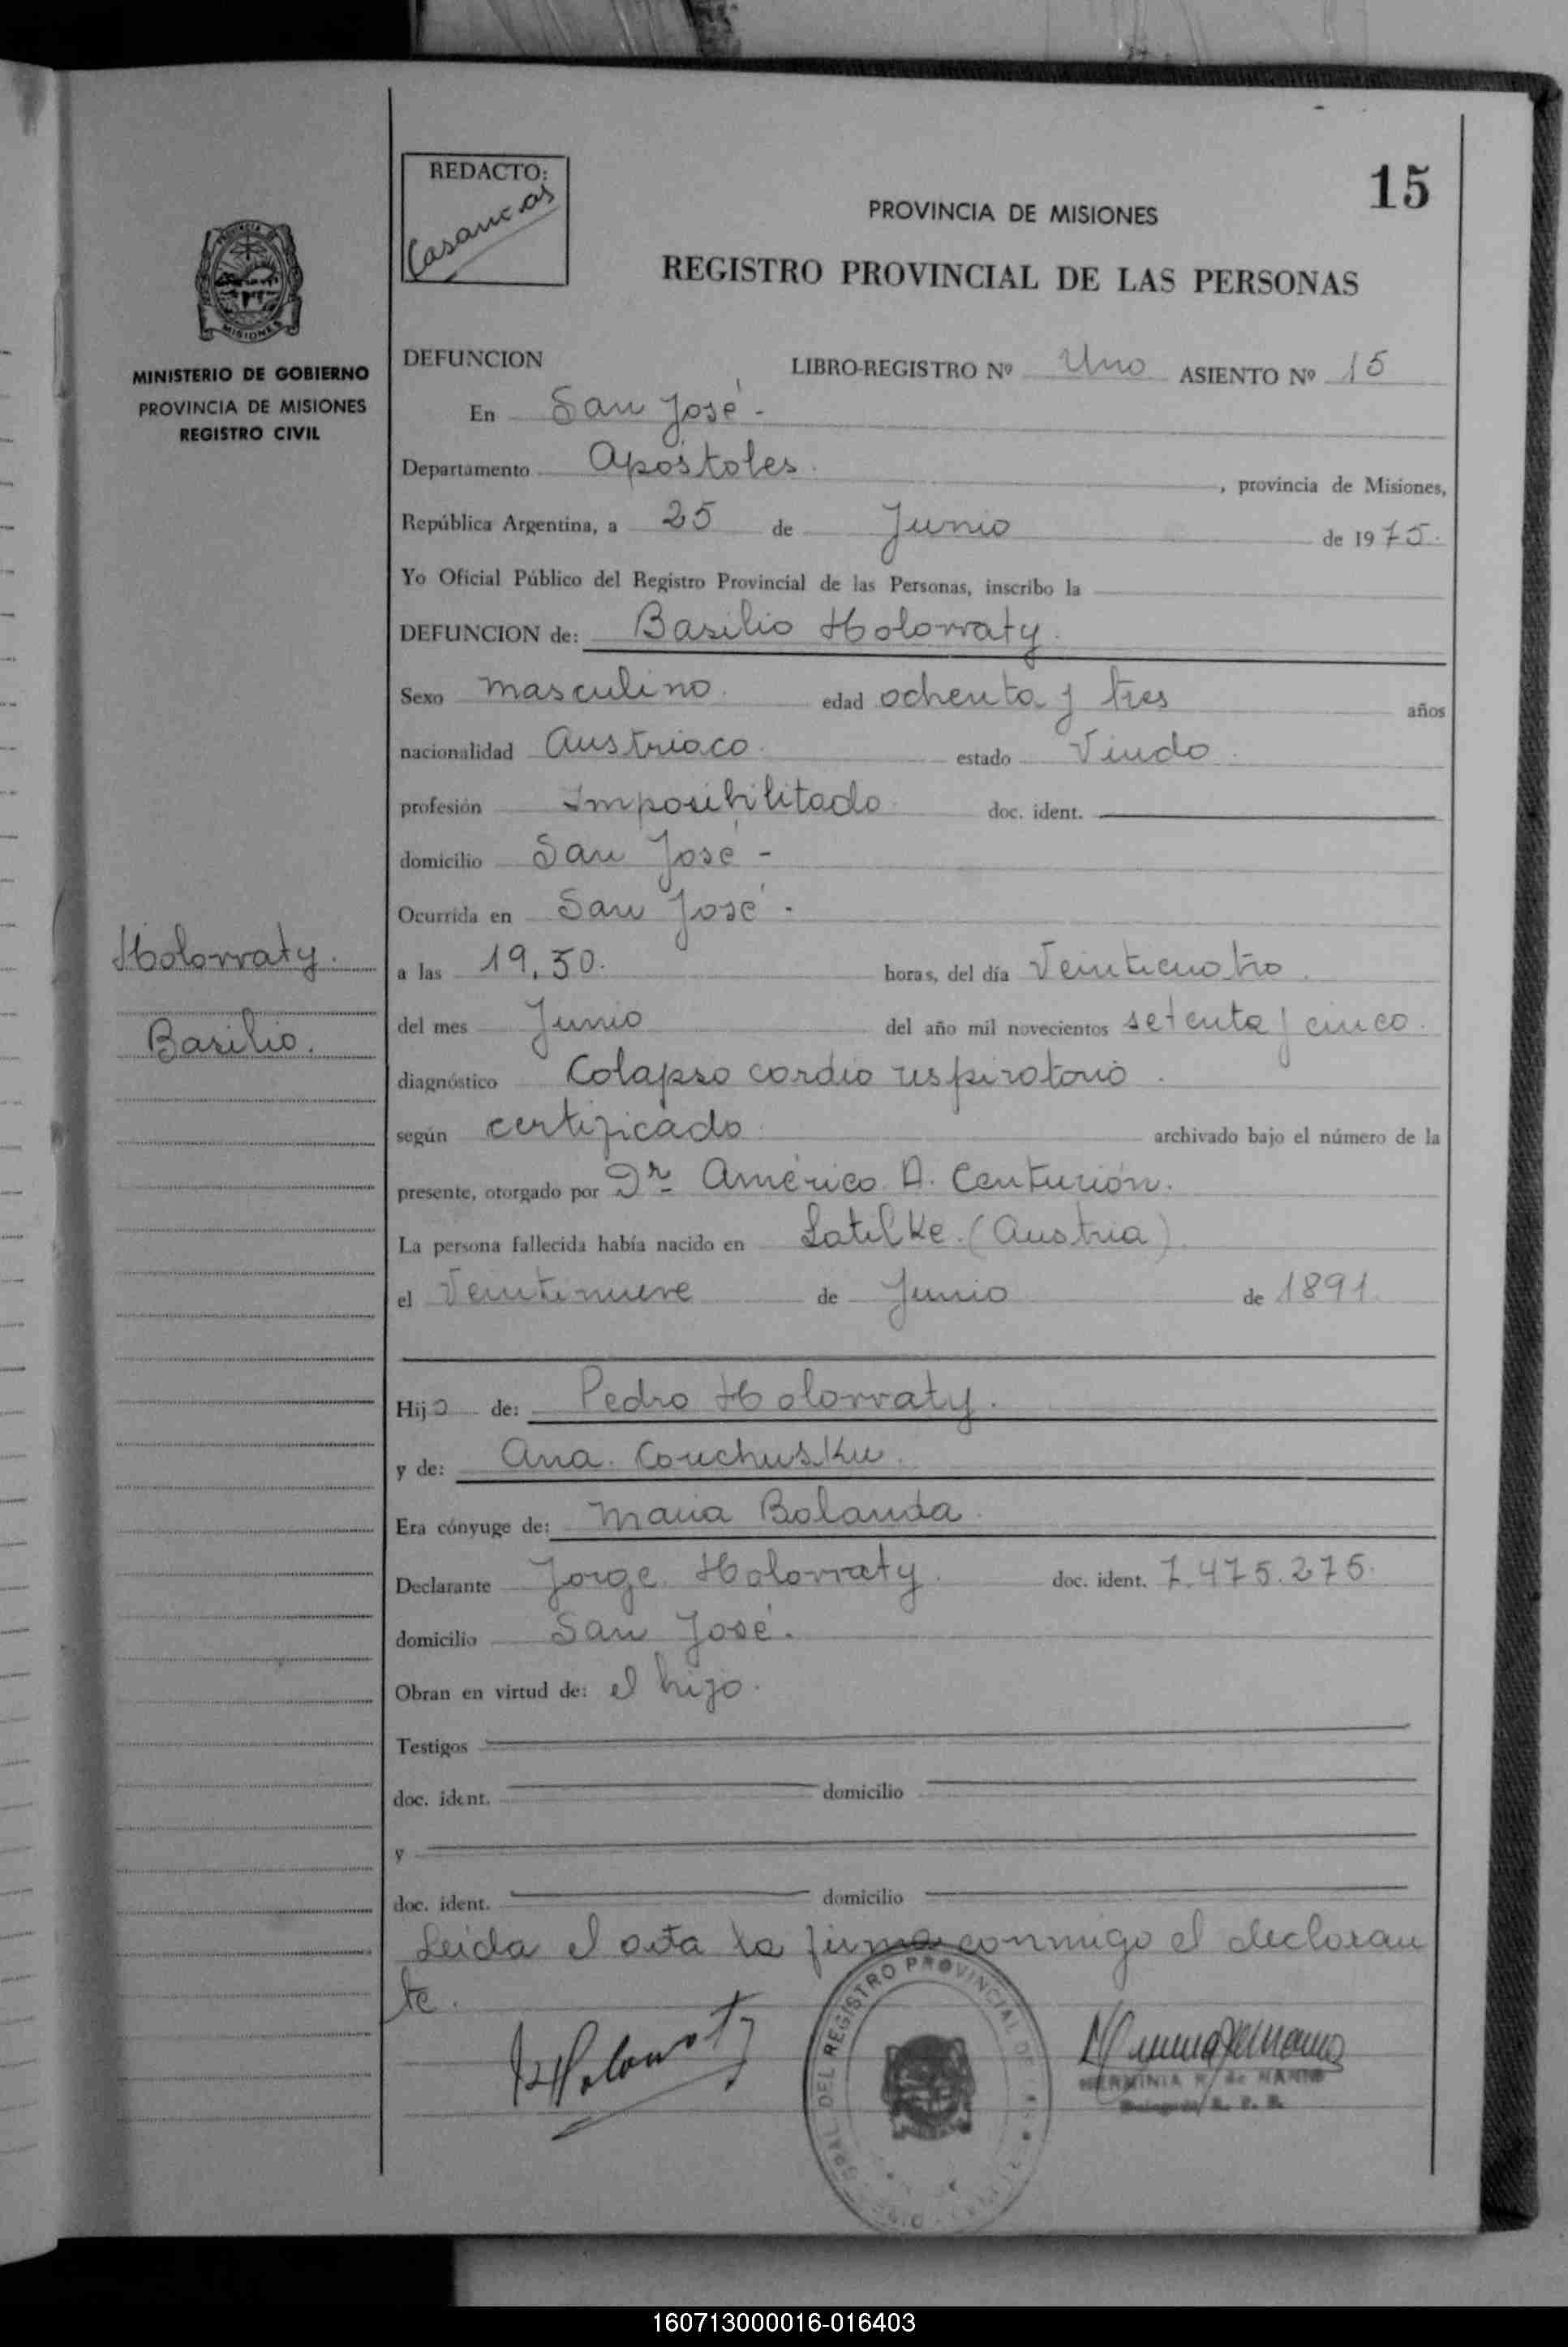 15
REDACTO:
Casancas
PROVINCIA DE MISIONES
REGISTRO PROVINCIAL DE LAS PERSONAS
MISIONES
MINISTERIO DE GOBIERNO
PROVINCIA DE MISIONES
REGISTRO CIVIL
DEFUNCION LIBRO-REGISTRO Nº Uno ASIENTO Nº 15
En San José.-
Departamento Apóstoles. , provincia de Misiones,
República Argentina, a 25 de Junio de 1975.
Yo Oficial Público del Registro Provincial de las Personas, inscribo la
DEFUNCION de: Basilio Holovvaty.
Sexo masculino. edad ochenta y tres años
nacionalidad Austriaco. estado Viudo.
profesión Imposibilitado. doc. ident.
domicilio San José -
Ocurrida en San José -
Holovvaty.
Basilio.
a las 19,50. horas, del día Veinticuatro.
del mes Junio del año mil novecientos setenta y cinco.
diagnóstico Colapso cardio respiratorio.
según certificado. archivado bajo el número de la
presente, otorgado por Dr. Américo A. Centurión.
La persona fallecida había nacido en Latilke. (Austria).
el Veintinueve de Junio de 1891.
Hijo de: Pedro Holovvaty.
y de: Ana. Couchusku.
Era cónyuge de: Maria Bolanda.
Declarante Jorge. Holovvaty. doc. ident. 7.475.275.
domicilio San José.
Obran en virtud de: el hijo.
Testigos
doc. ident. domicilio
y
doc. ident. domicilio
Leida el acta la firma conmigo el declaran
te.
DEL REGISTRO PROVINCIAL DE
HERMINIA de NANNO
160713000016-016403